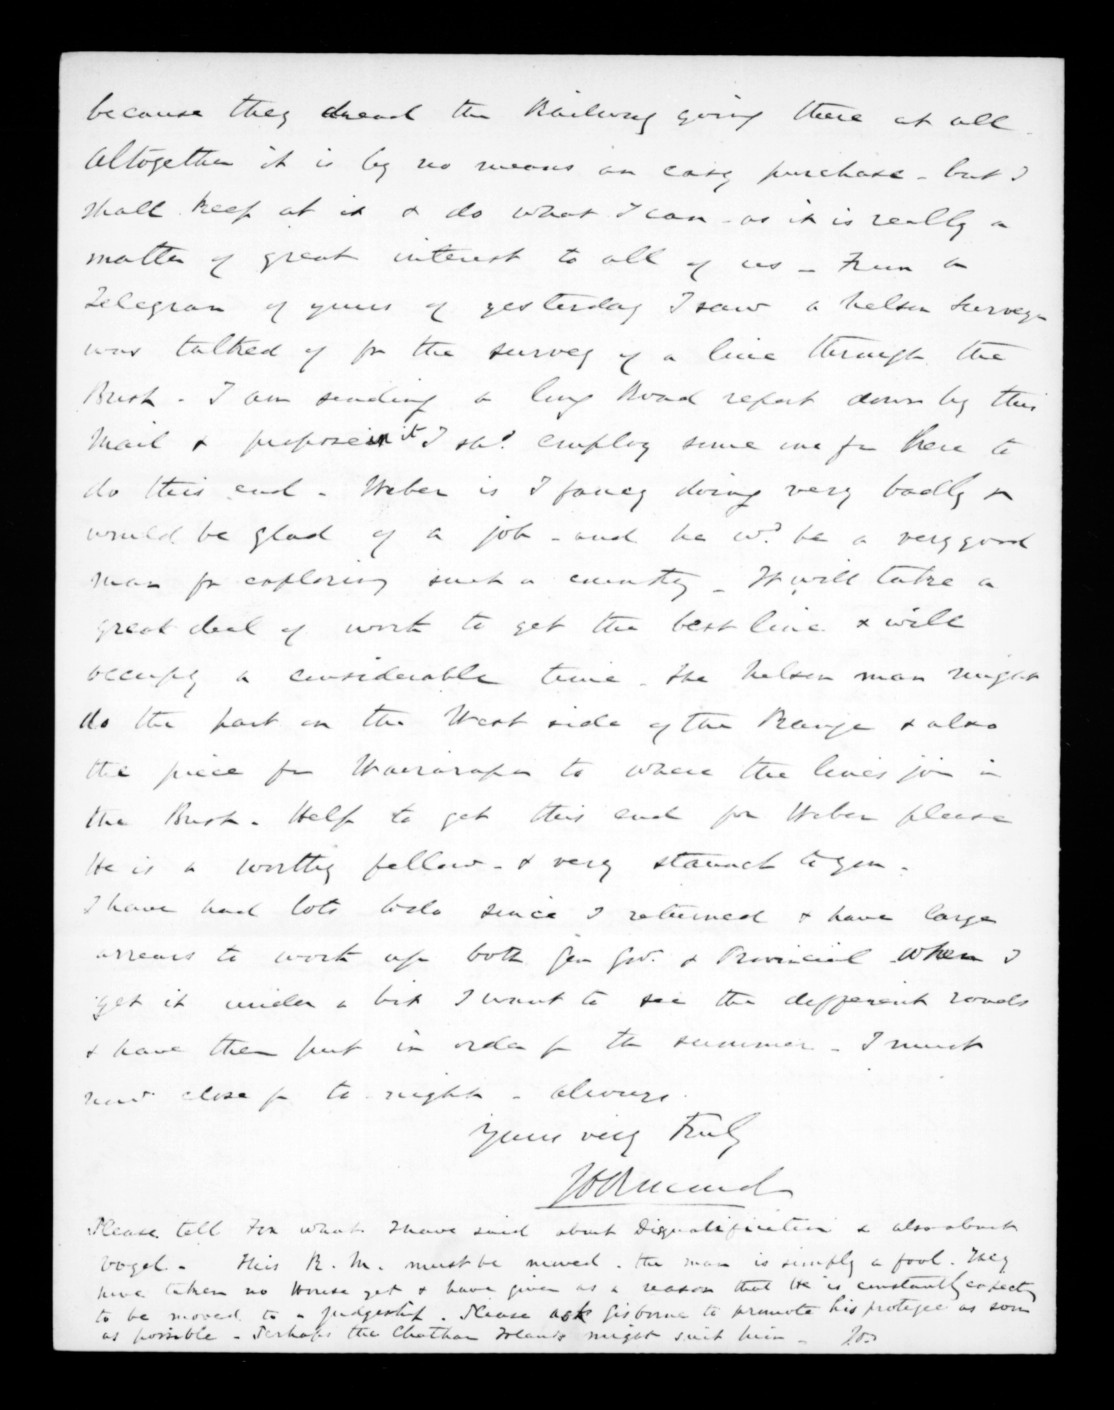 because they dread the Railway going there at all.
Altogether it is by no means an easy purchase - but I
shall keep at it & do what I can - as it is really a
matter of great interest to all of us - From a
Telegram of yours of yesterday I saw a Nelson Surveyor
was talked of for the survey of a line through the
Bush - I am sending a long Road report down by this
Mail & propose in it I shd. employ some one for here to
do this end - Weber is I fancy doing very badly &
would be glad of a job - and he wd. be a very good
man for exploring such a country - It will take a
great deal of work to get the best line & will
occupy a considerable time - The Nelson man might
do the part on the West side of the Range & also
the piece for Wairarapa to where the lines join in
the Bush. Help to get this end for Weber please
He is a worthy fellow - & very staunch to you -
I have had lots to do since I returned & have large
arrears to work up both Gen Govt. & Provincial when I
get it under a bit I want to see the different roads
& have them put in order for the summer - I must
now close for to night - always
Yours very truly
JD Ormond
Please tell Fox what I have said about Disqualification & also about
Vogel - This R. M. must be moved. the man is simply a fool. They
have taken no House yet & have given as a reason that He is constantly expectg
to be moved to a judgeship. Please ask Gisborne to promote his protegee as soon
as possible - Perhaps the Chatham Islands might suit him - JDO